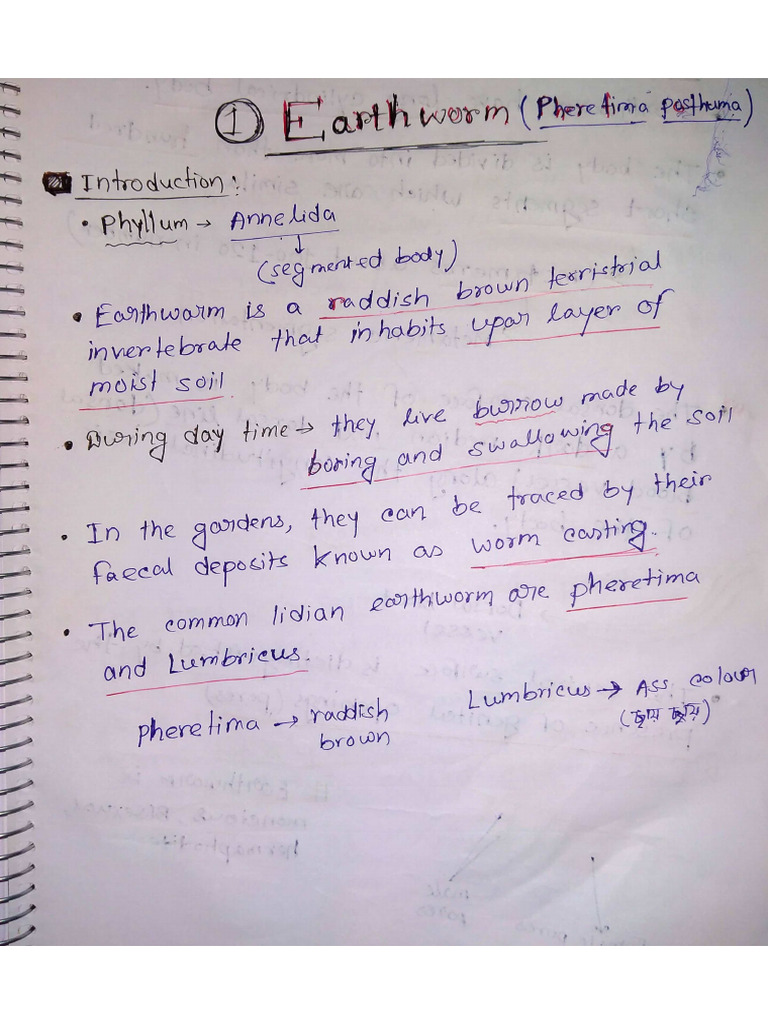 ① Earthworm (Pheretima posthuma)
Introduction:
• Phyllum → Annelida
↓
(segmented body)
• Earthwarm is a raddish brown terristrial
invertebrate that inhabits upar layer of
moist soil.
• During day time → they live burrow made by
boring and swallowing the soil
• In the gardens, they can be traced by their
faecal deposits known as worm casting.
• The common lidian earthworm are pheretima
and Lumbricus.
Pheretima → raddish
brown
Lumbricus → Ass. colour